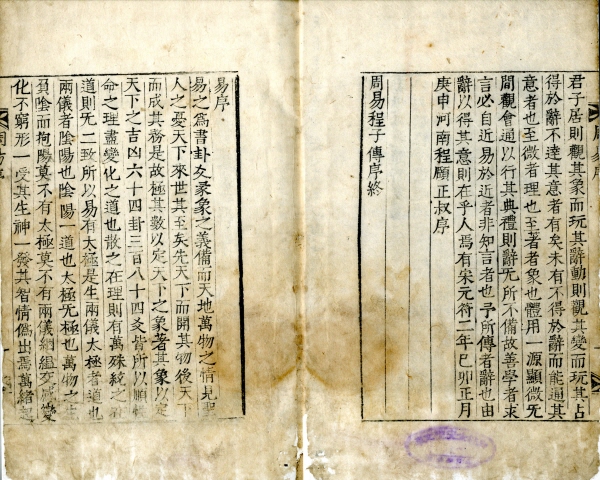 君子居則觀其象而玩其辭動則觀其變而玩其占
得於辭不達其意者有矣未有不得於辭而能通其
意者也至微者理也至著者象也體用一源顯微无
間觀會通以行其典禮則辭无所不備故善學者求
言必自近易於近者非知言者也予所傳者辭也由
辭以得其意則在乎人焉有宋元符二年巳卯正月
庚申河南程頤正叔序
周易程子傳序終
易序
易之爲書卦爻彖象之義備而天地萬物之情見聖
人之憂天下來世其至矣先天下而開其物後天下
而成其務是故極其數以定天下之象著其象以定
天下之吉凶六十四卦三百八十四爻皆所以順性
命之理盡變化之道也散之在理則有萬殊統之在
道則无二致所以易有太極是生兩儀太極者道也
兩儀者陰陽也陰陽一道也太極无極也萬物之生
負陰而抱陽莫不有太極莫不有兩儀絪縕交感變
化不窮形一受其生神一發其智情僞出焉萬緒起